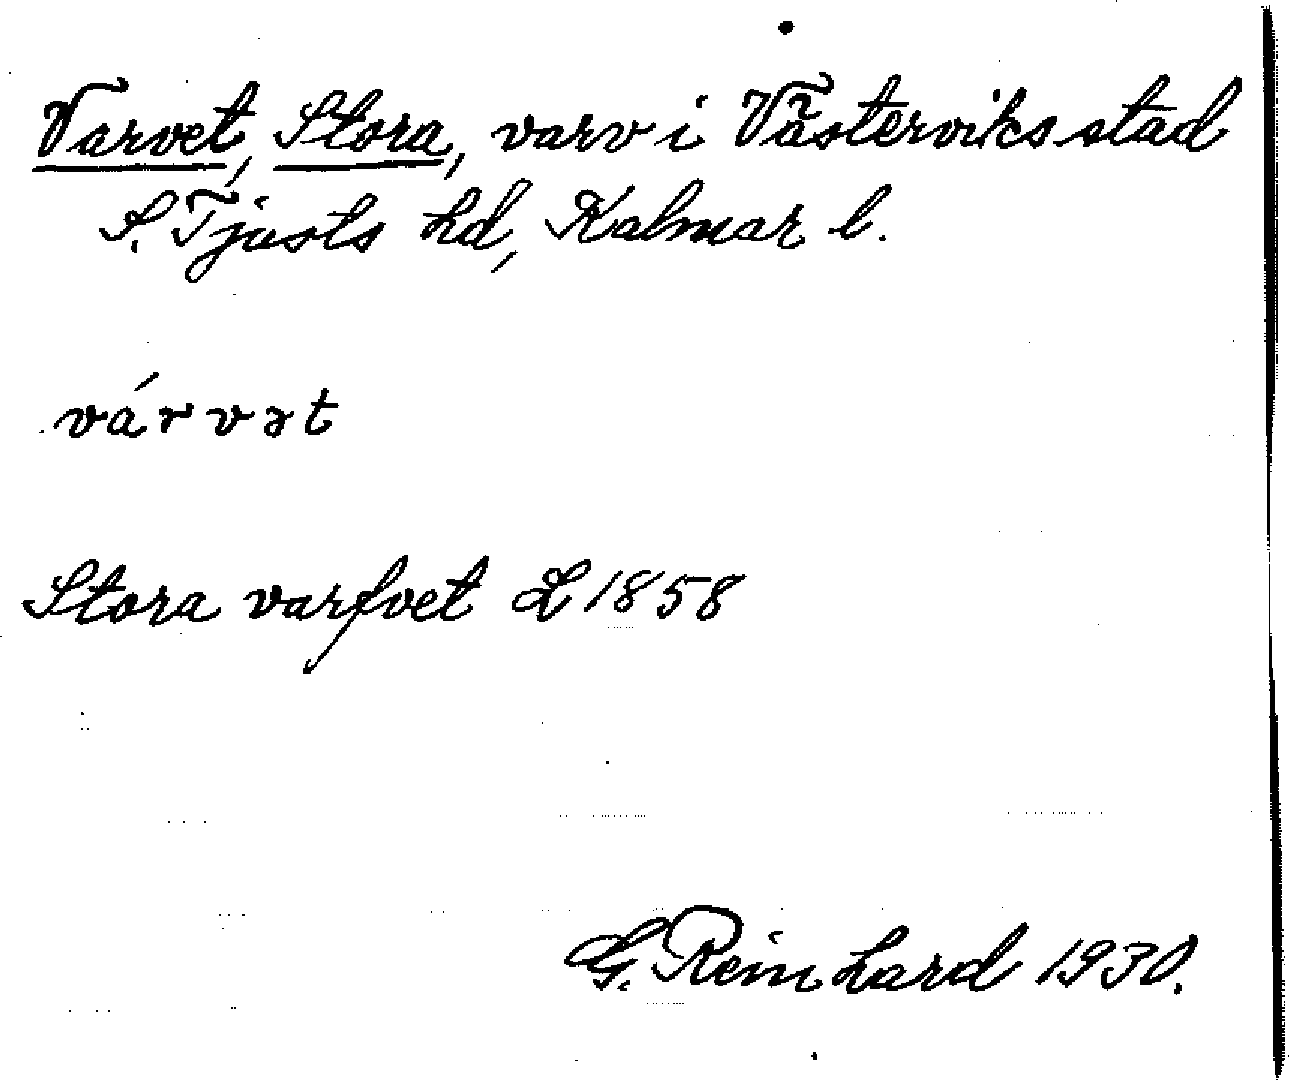 Varvet, Stora, varv i Västerviks stad
S. Tjusts hd, Kalmar l.
várvət
Stora varfvet L 1858
G. Reinhard 1930.